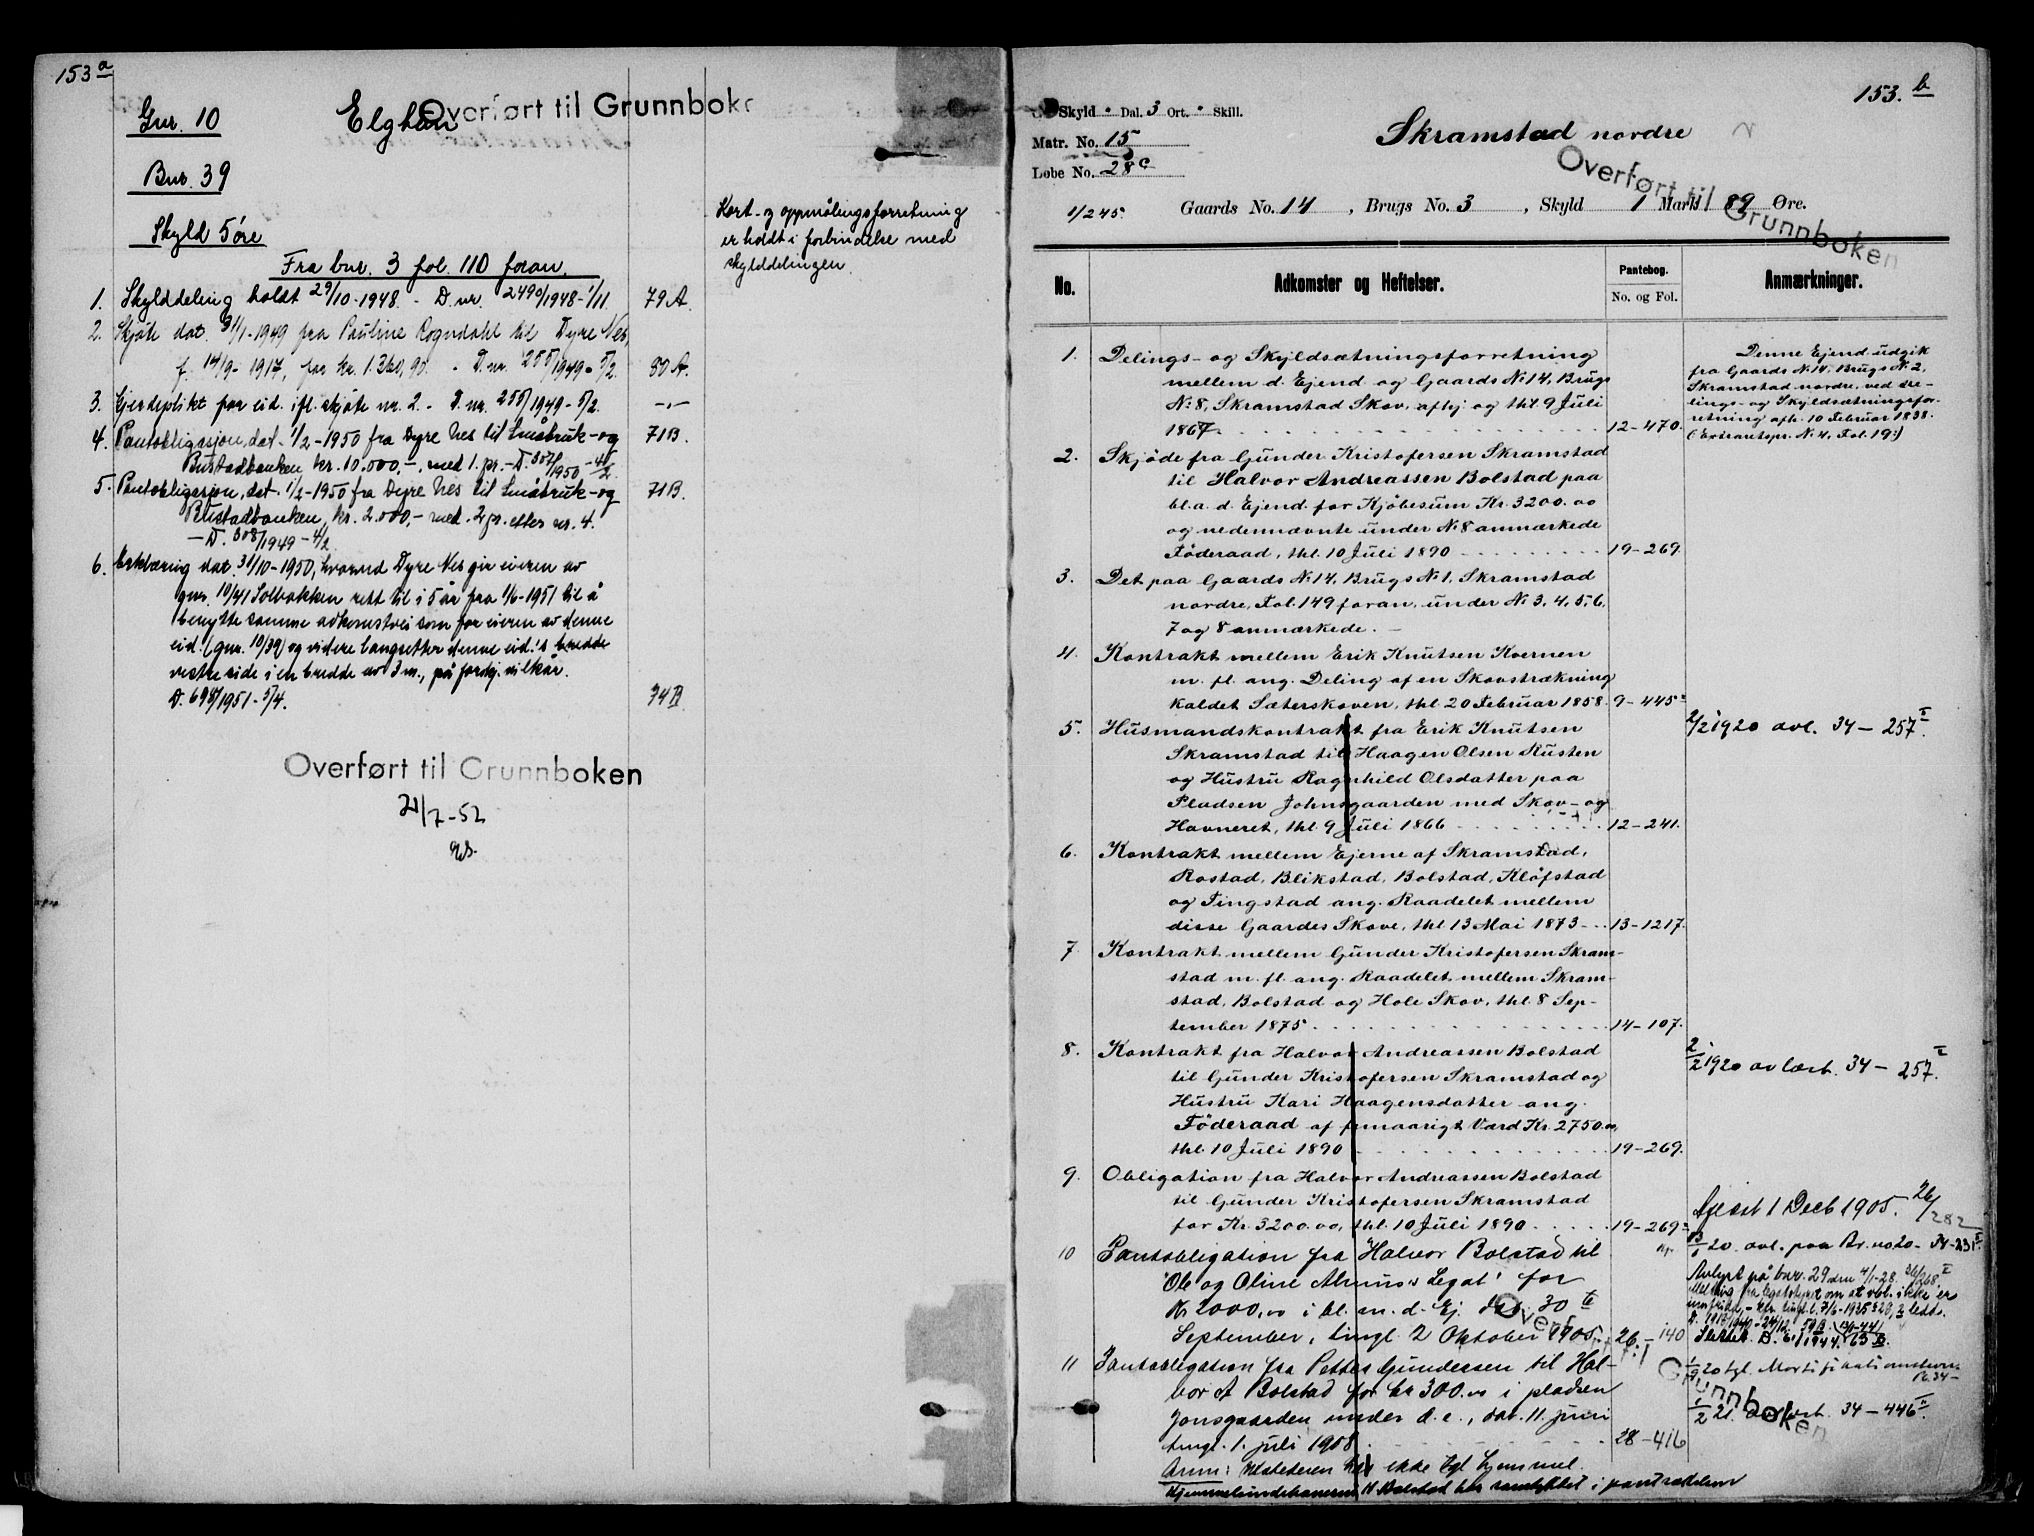 153 a
Gnr. 10
Elgheim
Overført til Grunnboke
Bnr. 39
Skyld 5 øre
Kart- og oppmålingsforretning
er holdt i forbindelse med
skylddelingen.
Fra bnr. 3 fol. 110 foran.
1. Skylddeling holdt 29/10-1948. - D.nr. 2490/1948-1/11 79 A.
2. Skjøte dat. 31/1-1949 fra Pauline Rogndahl til Dyre Nes,
f. 14/9-1917, for kr. 1.360,90. - D.nr. 255/1949-5/2. 80 A.
3. Gjerdeplikt for eid. ifl. skjøte nr. 2. - D.nr. 255/1949-5/2. -"-
4. Pantobligasjon, dat. 1/2-1950 fra Dyre Nes til Småbruk- og 71 B.
Bustadbanken kr. 10.000,-, med 1. pr. - D. 307/1950-4/2
5. Pantobligasjon, dat. 1/2-1950 fra Dyre Nes til Småbruk- og 71 B.
Bustadbanken, kr. 2.000,- med 2. pr. etter nr. 4.
- D. 308/1949-4/2.
6. Erklæring dat. 31/10-1950, hvorved Dyre Nes gir eieren av
gnr. 10/41 Solbakken rett til i 5 år fra 1/6-1951 til å
benytte samme adkomstvei som for eieren av denne
eid. (gnr. 10/39) og videre langsetter denne eid.'s bredde
vestre side i en bredde av 3 m., på fordj. vilkår.
D. 698/1951-5/4. 74 B.
Overført til Grunnboken
21/7-52
153. b
Skyld " Dal. 3 Ort. " Skill.
Matr. No. 15
Løbe No. 28 c
Skramstad nordre
Overført til Grunnboken
1/245. Gaards No. 14, Brugs No. 3, Skyld 1 Mark 89 Øre.
No. Adkomster og Heftelser. Pantebog. No. og Fol. Anmærkninger.
1. Delings- og Skyldsætningsforretning
mellem d. Ejend. og Gaards No 14, Brugs
No 8, Skramstad Skov, afhj. og thl. 9 Juli
1867. 12-470.
Denne Ejend. udgik
fra Gaards No 14, Brugs No 2,
Skramstad nordre, ved de-
lings- og Skyldsætningsfor-
retning afh. 10 Februar 1838.
(Extractspr. No 4, Fol. 19.)
2. Skjøde fra Gunder Kristofersen Skramstad
til Halvor Andreassen Bolstad paa
bl.a. d. Ejend. for Kjøbesum Kr. 3200.00
og nedennævnte under No 8 anmærkede
Föderaad, thl. 10 Juli 1890 19-269.
3. Det paa Gaards No 14, Brugs No 1, Skramstad
nordre, Fol. 149 foran, under No 3, 4, 5, 6,
7 og 8 anmærkede. -
4. Kontrakt mellem Erik Knutsen Kvernen
m. fl. ang. Deling af en Skovstrækning
kaldet Sæterskoven, thl. 20 Februar 1858. 9-445 2
5. Husmandskontrakt fra Erik Knutsen
Skramstad til Haagen Olsen Rusten
og Hustru Ragnhild Olsdatter paa
Pladsen Johnsgaarden med Skov- og
Havneret, thl. 9 Juli 1866 12-241.
2/2 1920 avl. 34-257 I.
6. Kontrakt mellem Ejerne af Skramstad,
Rostad, Blikstad, Bolstad, Kløfstad
og Tingstad ang. Raadelet mellem
disse Gaardes Skove, thl. 13 Mai 1873 13-1217.
7. Kontrakt mellem Gunder Kristofersen Skram-
stad m. fl. ang. Raadelet mellem Skram-
stad, Bolstad og Hole Skov, thl. 8 Sep-
tember 1875 14-107.
8. Kontrakt fra Halvor Andreassen Bolstad
til Gunder Kristofersen Skramstad og
Hustru Kari Haagensdatter ang.
Föderaad af femaarigt Værd Kr. 2750.00,
thl. 10 Juli 1890 19-269.
2/2 1920 avlæst. 34-257 I.
9. Obligation fra Halvor Andreassen Bolstad
til Gunder Kristofersen Skramstad
for Kr. 3200.00, thl. 10 Juli 1890 19-269 2
Aflæst 1 Decb 1905. 26/282
10 Pantobligation fra Halvor Bolstad til
"Ole og Oline Alruns Legat" for
Kr 2000,00 i bl. m. d. Ej. dat. 30 te
September, tingl. 2 Oktober 1905. 26-140
13/1 20. avl. paa Br. no 20- 34-231 I.
Avlyst på bnr. 29 den 4/1-28. 36/268 I
Slettet. D. 61/1944. 63 B.
Overført til Grunnboken
11 Pantobligation fra Petter Gundersen til Hal-
vor A Bolstad for kr 300.00 i pladsen
Jonsgaarden under d. e., dat. 11. juni
tingl. 1. juli 1908 28-416
1/9 20 tgl. Mortifikationsstevn.
1/2 21. avlæst. 34-446 I.
Anm: Utstederen har ikke tgl hjemmel.
Hjemmelsindehaveren H Bolstad har samtykket i pantsettelsen